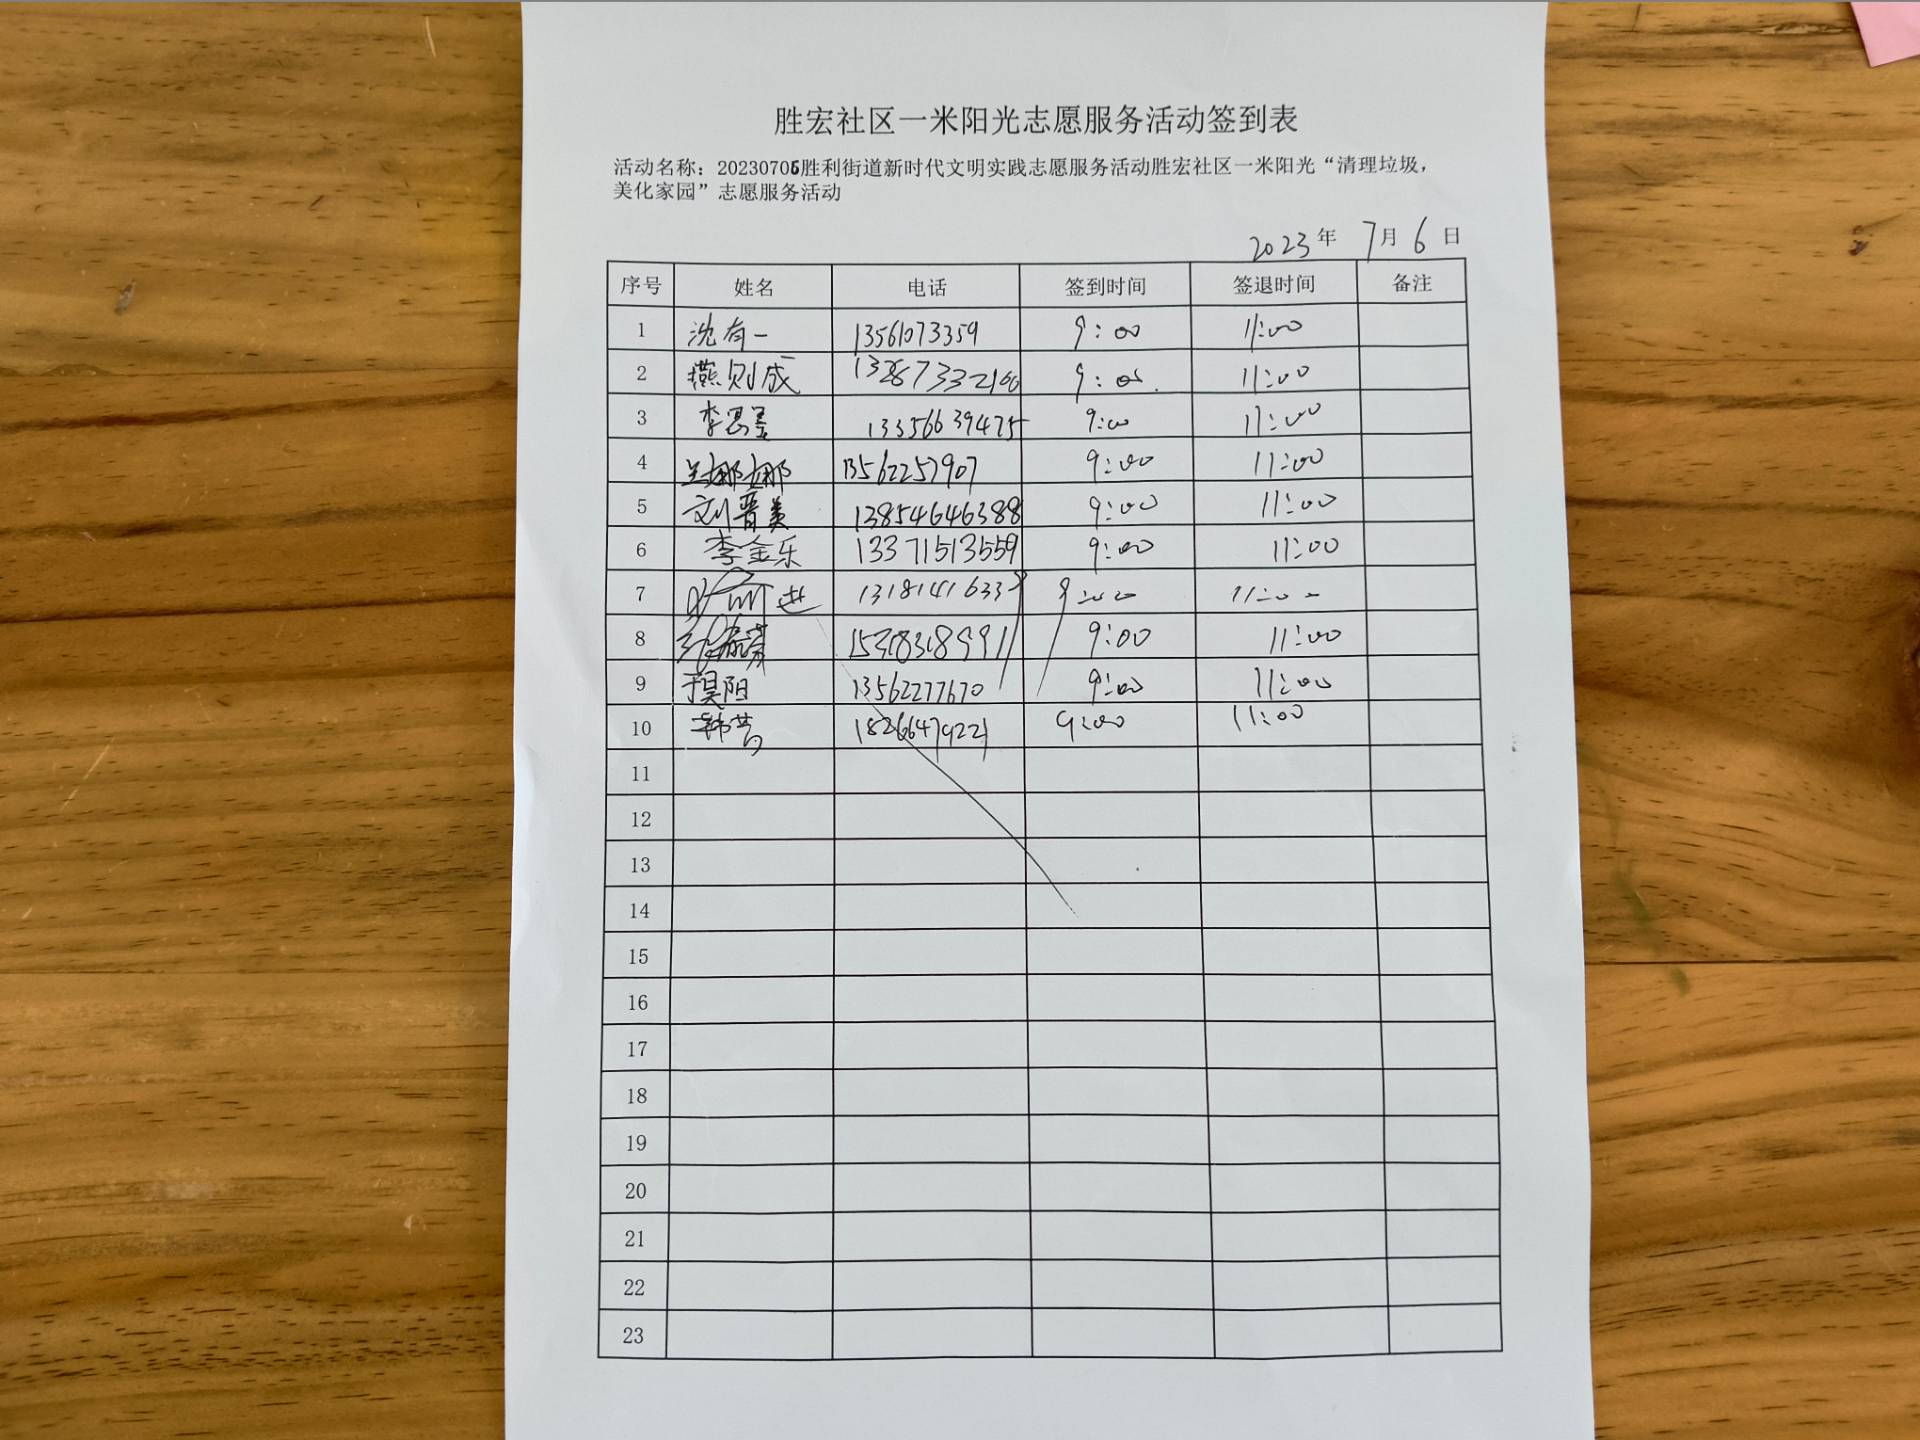 胜宏社区一米阳光志愿服务活动签到表
活动名称：20230706胜利街道新时代文明实践志愿服务活动胜宏社区一米阳光“清理垃圾，
美化家园”志愿服务活动
2023年 7月 6 日
序号 姓名 电话 签到时间 签退时间 备注
1 沈有一 13561073359 9:00 11:00
2 燕则成 9:00 11:00
3 13356639475 9:00 11:00
4 兰娜娜 13562257907 9:00 11:00
5 刘晋美 13854646388 9:00 11:00
6 李金乐 13371513559 9:00 11:00
7 9:00 11:00
8 9:00 11:00
9 13562277670 9:00 11:00
10 18266479221 9:00 11:00
11
12
13
14
15
16
17
18
19
20
21
22
23